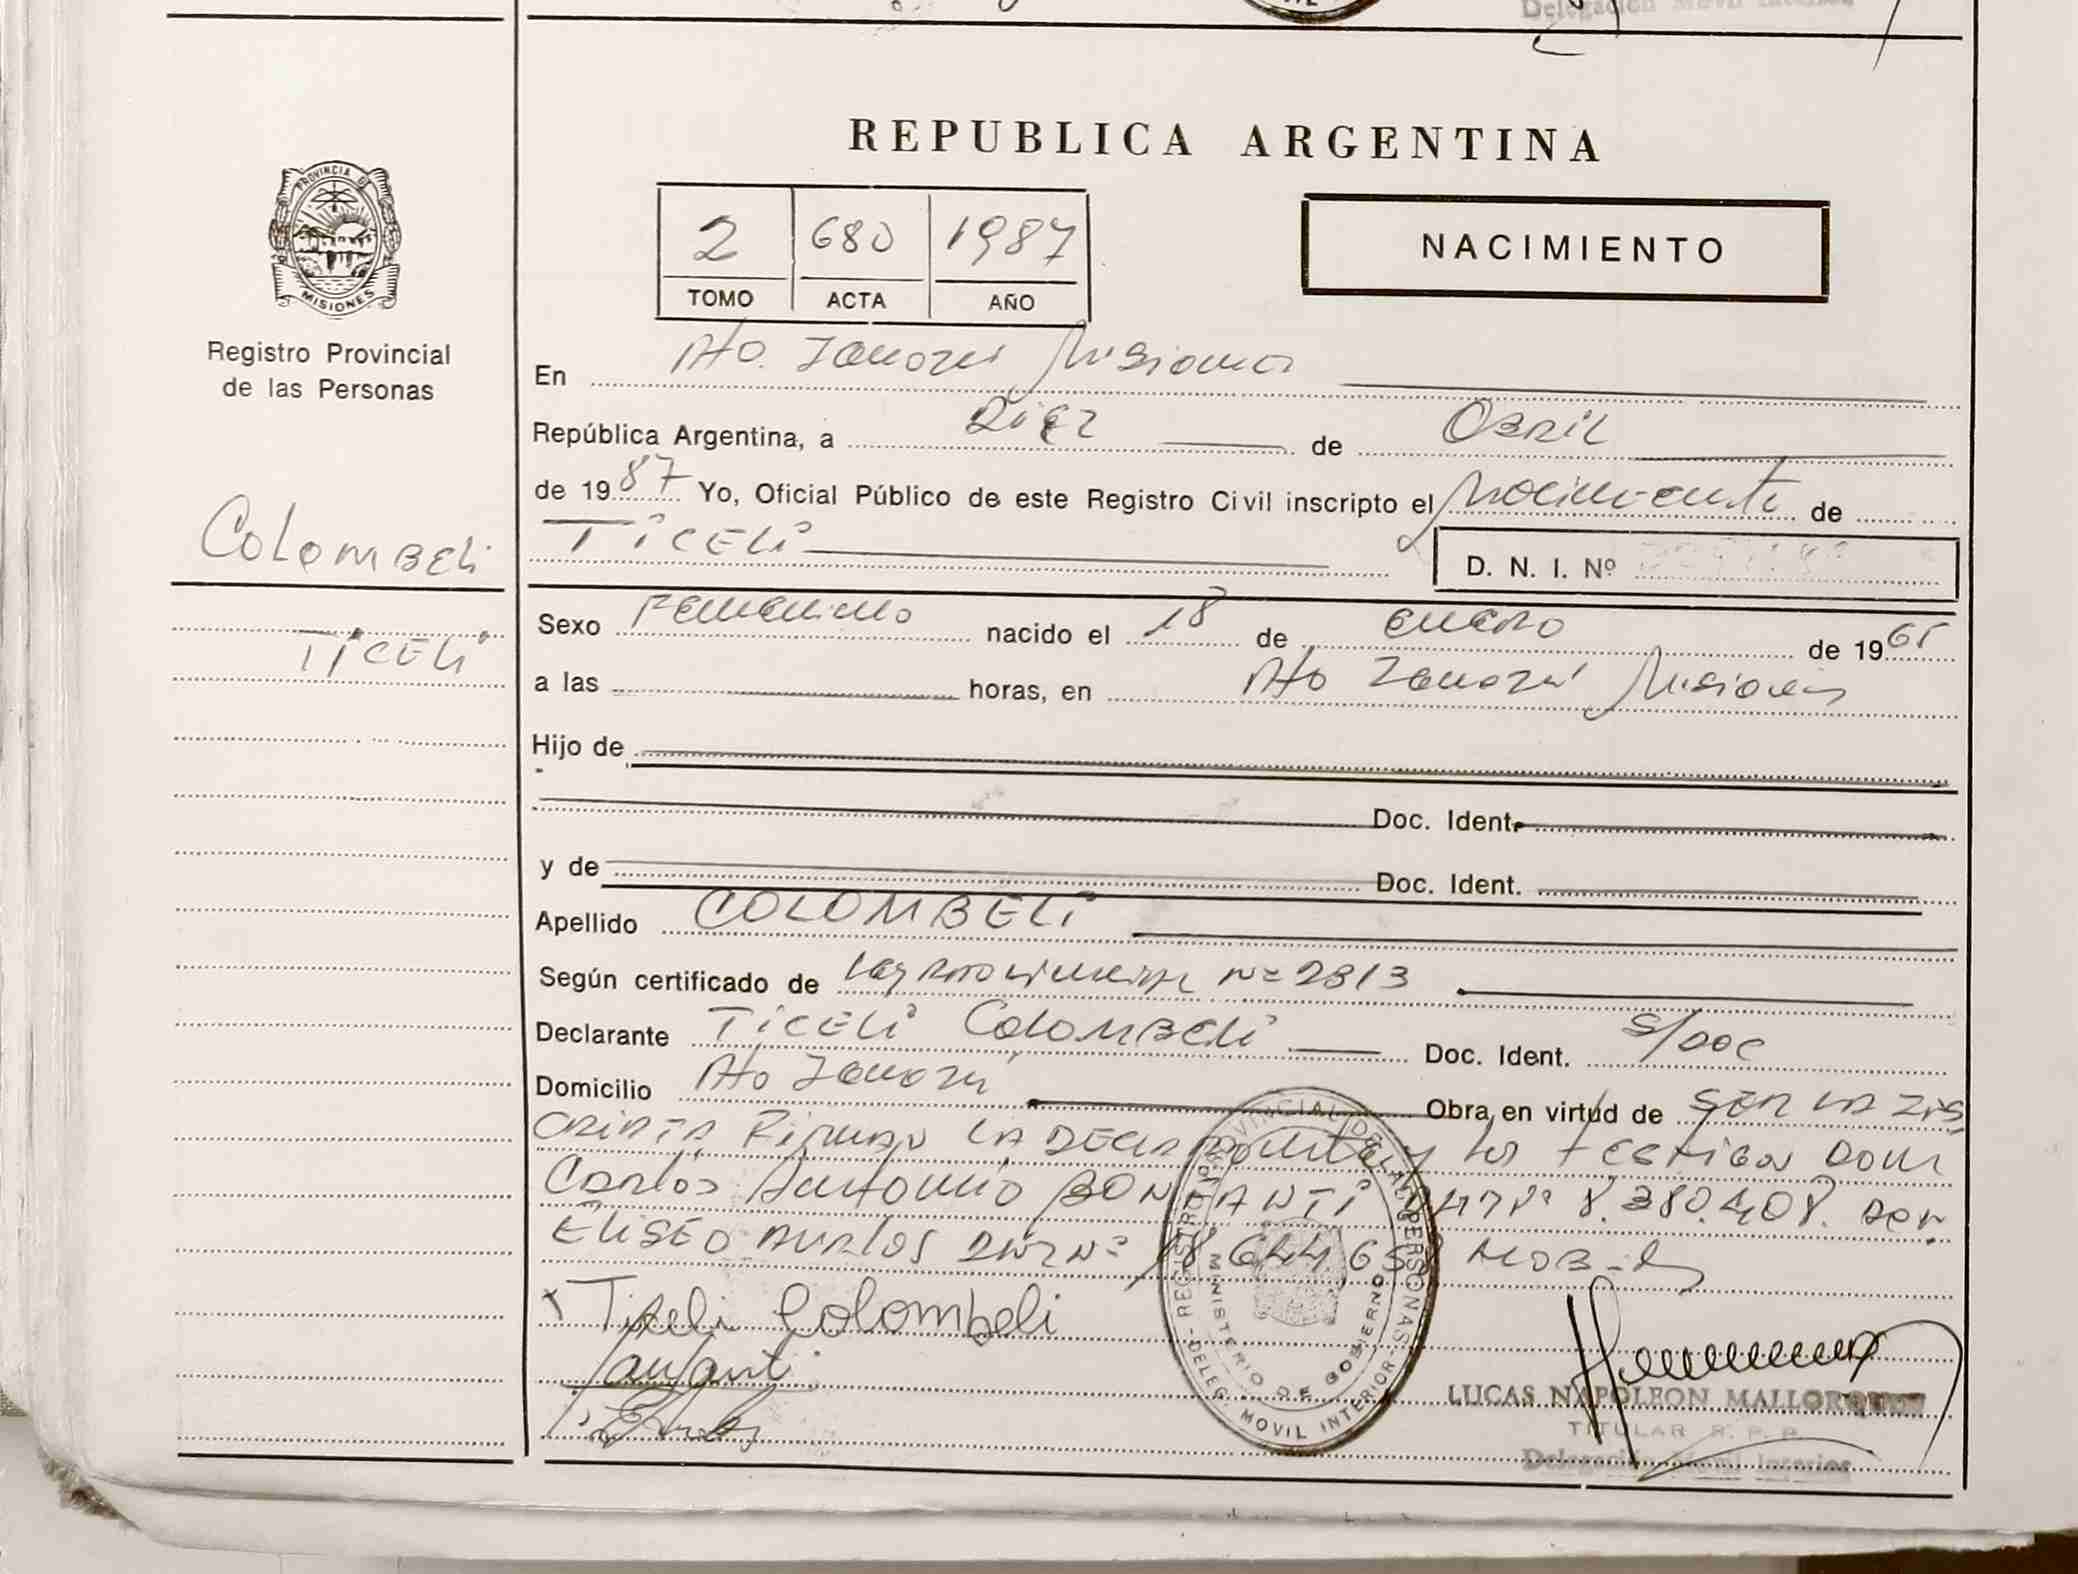 REPUBLICA ARGENTINA
PROVINCIA DE
MISIONES
Registro Provincial
de las Personas
2 680 1987
TOMO ACTA AÑO
NACIMIENTO
En Pto. Misiones
República Argentina, a Diez de Abril
de 1987 Yo, Oficial Público de este Registro Civil inscripto el Nacimiento de
TiCELi
D. N. I. Nº
ColomBEli
TiCELi
Sexo Femenino nacido el 18 de enero de 1965
a las horas, en Pto Misiones
Hijo de
Doc. Ident.
y de Doc. Ident.
Apellido COLOMBELi
Según certificado de Nº 2813
Declarante TiCELi ColomBEli Doc. Ident. S/DOC
Domicilio Pto Obra en virtud de SER LA INS
CRIPTA Firman LA DECLARANTE y los testigos Don
Carlos Antonio BONFANTi Nº 8.380.408. Don
ELiSEO Nº 18.644.658
Ticeli Colombeli
REGISTRO PROVINCIAL DE LAS PERSONAS
MINISTERIO DE GOBIERNO
DELEG. MOVIL INTERIOR
LUCAS NAPOLEON
TITULAR R. P. P.
Delegación Movil Interior